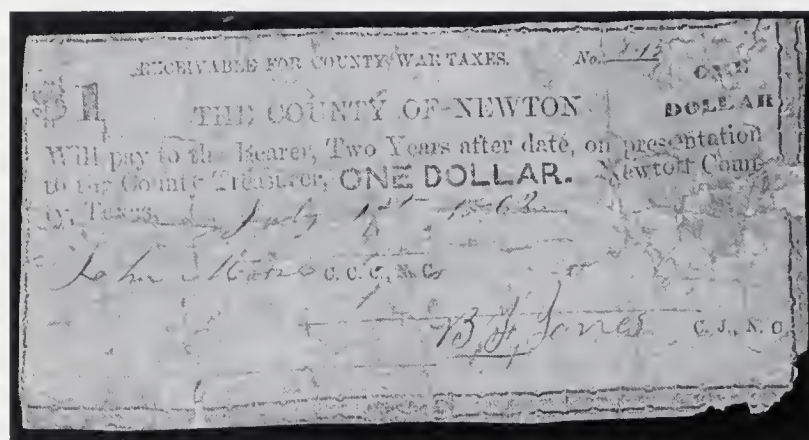 RECEIVABLE FOR COUNTY WAR TAXES. No.
$1 ONE
DOLLAR
THE COUNTY OF NEWTON
Will pay to the Bearer, Two Years after date, on presentation
to the County Treasurer, ONE DOLLAR. Newton Coun-
ty, Texas, July 1st 1862
John C. C. C., N. C.
B H Jones C. J., N. C.